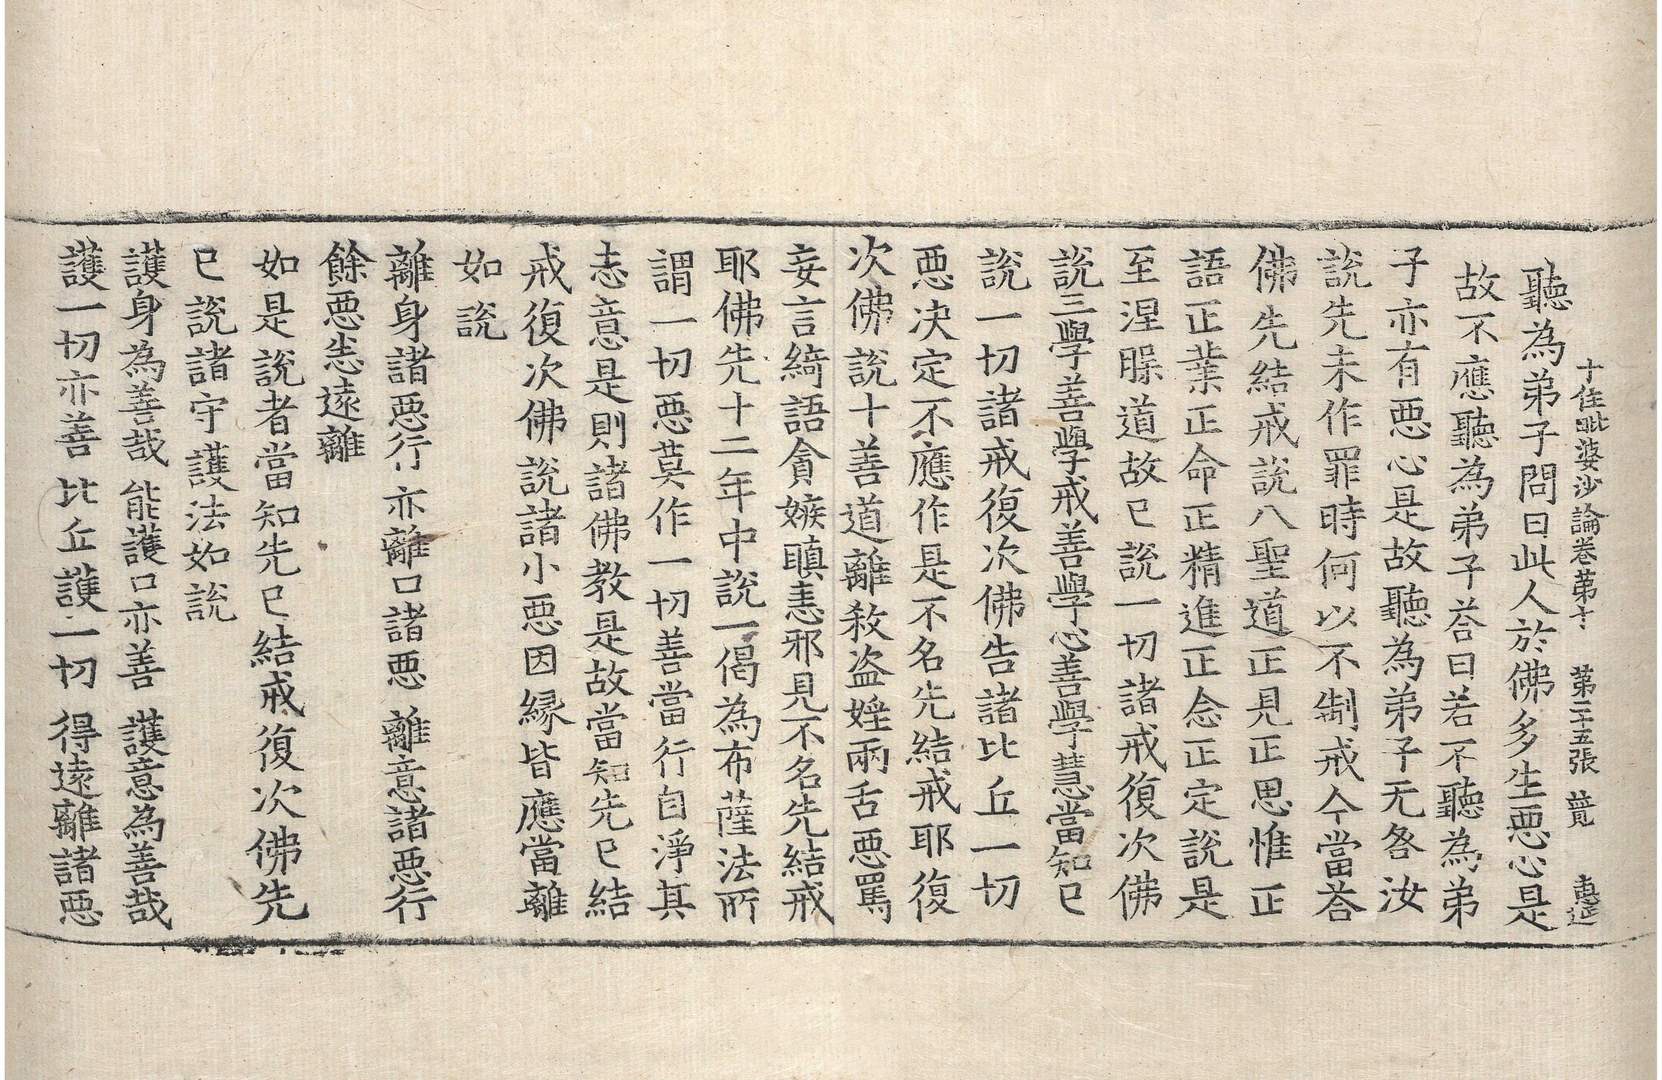 十住毗婆沙論卷第十 第二十五張 競 惠
聽為弟子問曰此人於佛多生惡心是
故不應聽為弟子荅曰若不聽為弟
子亦有惡心是故聽為弟子无咎汝
說先未作罪時何以不制戒今當荅
佛先結戒說八聖道正見正思惟正
語正業正命正精進正念正定說是
至涅槃道故已說一切諸戒復次佛
說三學善學戒善學心善學慧當知已
說一切諸戒復次佛告諸比丘一切
惡決定不應作是不名先結戒耶復
次佛說十善道離殺盜婬兩舌惡罵
妄言綺語貪嫉瞋恚邪見不名先結戒
耶佛先十二年中說一偈為布薩法所
謂一切惡莫作一切善當行自淨其
志意是則諸佛教是故當知先已結
戒復次佛說諸小惡因緣皆應當離
如說
離身諸惡行 亦離口諸惡 離意諸惡行
餘惡悉遠離
如是說者當知先已結戒復次佛先
已說諸守護法如說
護身為善哉 能護口亦善 護意為善哉
護一切亦善 比丘護一切 得遠離諸惡